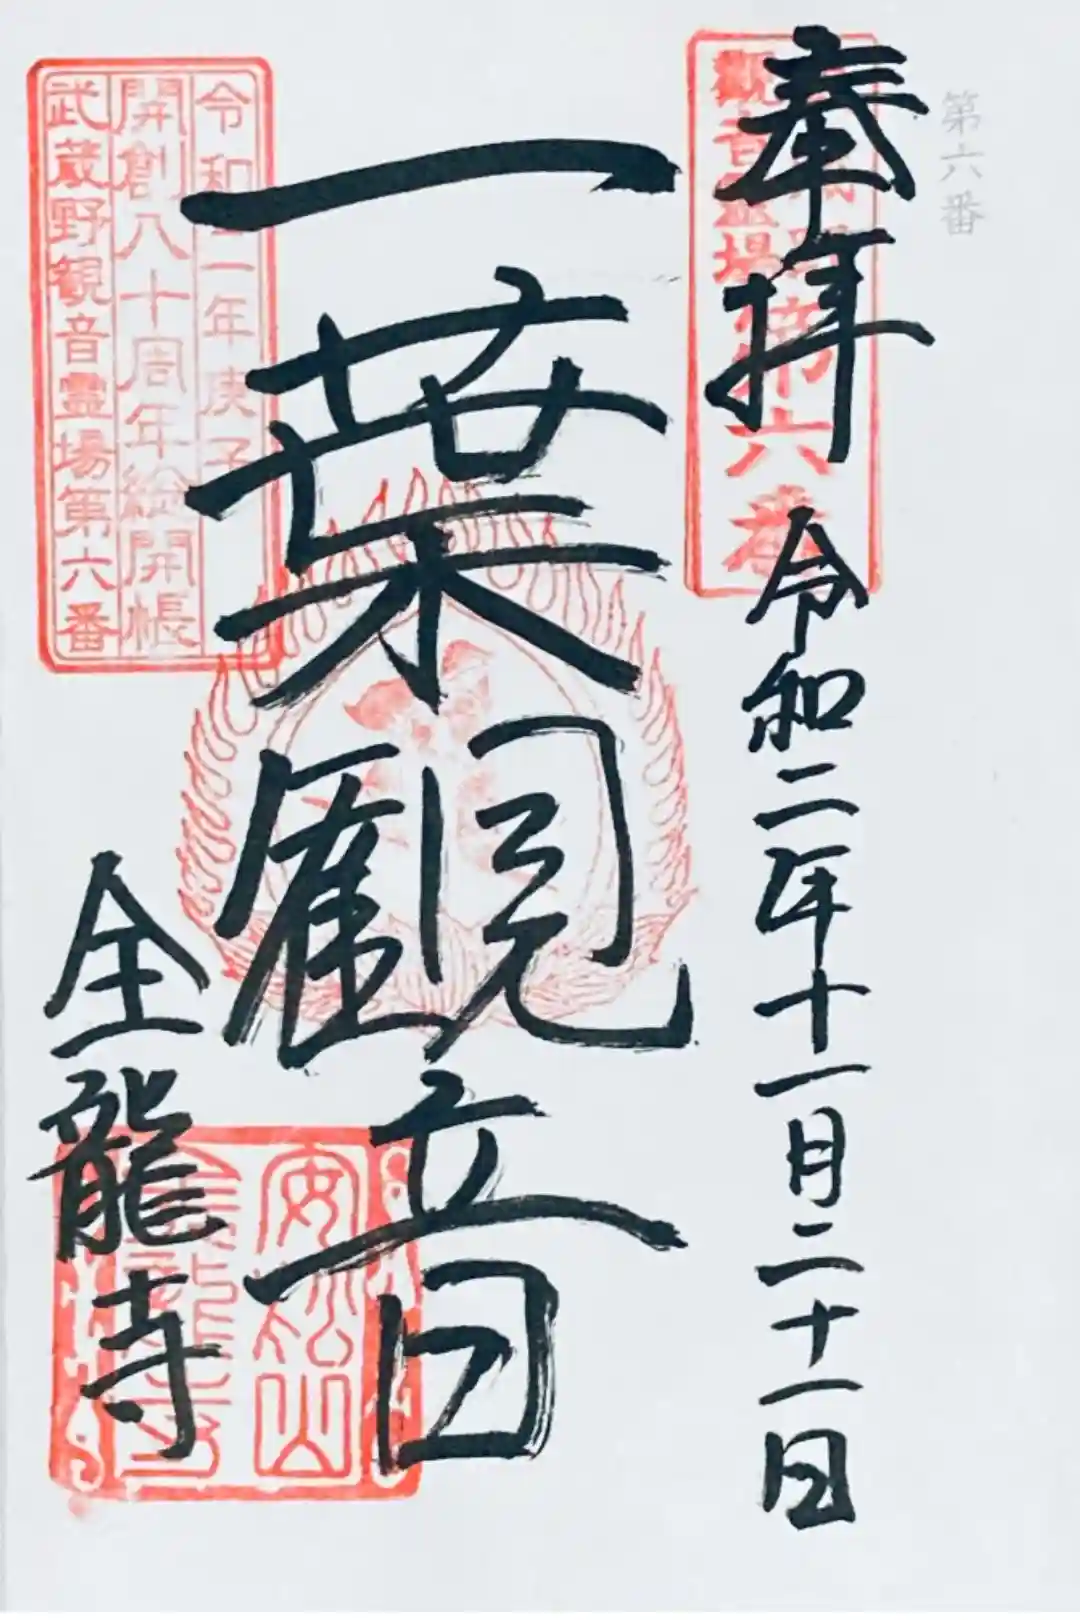 第六番
奉拝
令和二年十一月二十一日
第六番
一葉觀音
令和二年庚子
開創八十周年総開帳
武蔵野観音霊場第六番
全龍寺
安松山